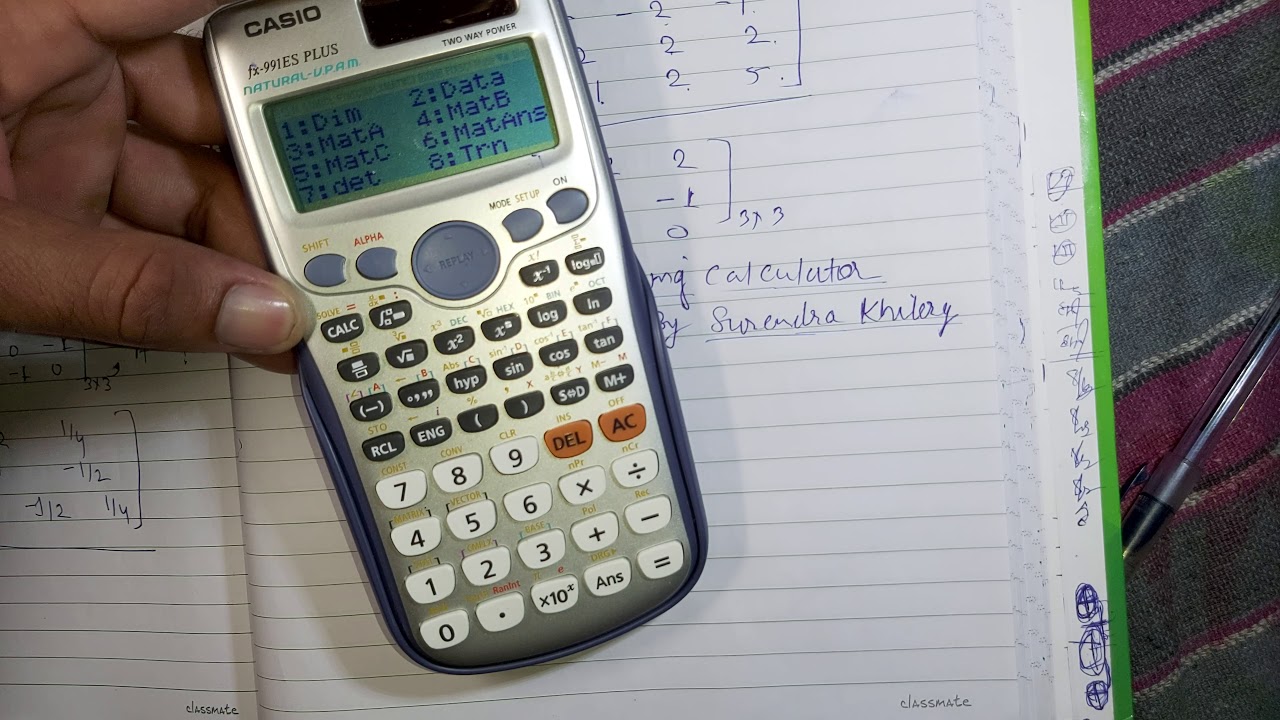 CASIO
fx-991ES PLUS
TWO WAY POWER
NATURAL-V.P.A.M.
1:Dim 2:Data
3:MatA 4:MatB
5:MatC 6:MatAns
7:det 8:Trn
SHIFT ALPHA MODE SETUP ON
REPLAY
SOLVE = x! 
CALC x⁻¹ log
DEC HEX BIN OCT
√ x² log ln
Abs sin⁻¹ cos⁻¹ tan⁻¹
(−) hyp sin cos tan
STO M− M
RCL ENG ( ) S⇔D M+
CONST CONV CLR INS OFF
7 8 9 DEL AC
MATRIX VECTOR nPr nCr
4 5 6 × ÷
BASE Pol Rec
1 2 3 + −
RanInt e DRG▸
0 . ×10ˣ Ans =
-2 -1.
2 2.
1. 2 5.
2
-1
0 3×3
calculator
By Surendra Khilery
0 -1
-1 0 3×3
1/4
-1/2
-1/2 1/4
classmate
classmate